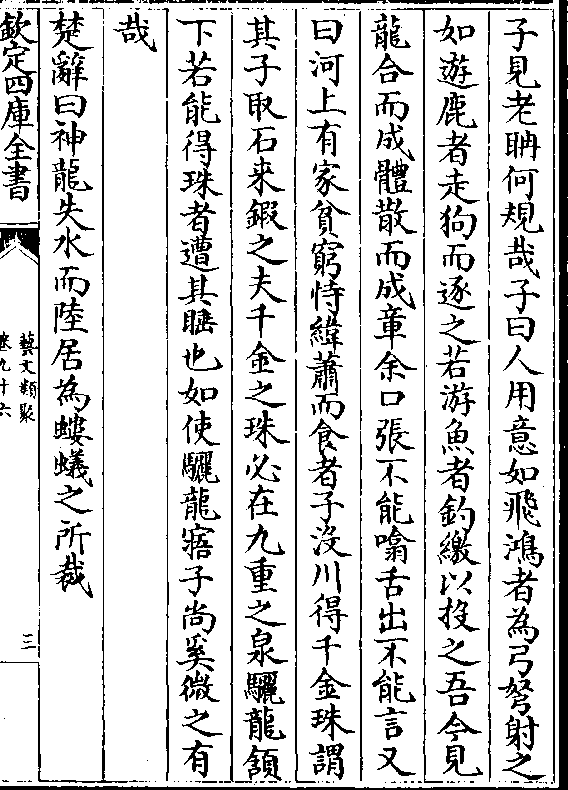 子見老聃何規哉子曰人用意如飛鴻者為弓弩射之
如遊鹿者走狗而逐之若游魚者釣繳以投之吾今見
龍合而成體散而成章余口張不能噏舌出不能言又
曰河上有家貧窮恃緯蕭而食者子沒川得千金珠謂
其子取石來鍜之夫千金之珠必在九重之泉驪龍頷
下若能得珠者遭其睡也如使驪龍寤子尚奚微之有
哉
楚辭曰神龍失水而陸居為螻蟻之所裁
欽定四庫全書
藝文類聚
卷九十六
三